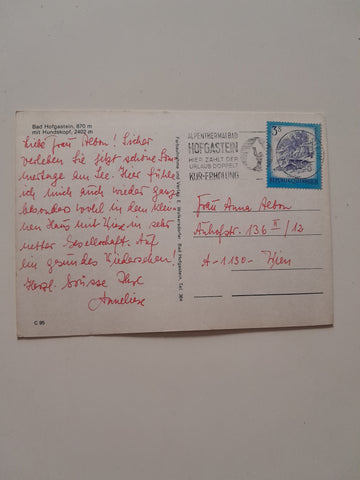 Bad Hofgastein, 870 m
mit Hundskopf, 2402 m
Liebe Frau Aebon! Sicher
verleben Sie jetzt schöne Som-
mertage am See. Hier fühle
ich mich auch wieder ganz
besonders wohl in dem klei-
nen Haus mit Wiese in sehr
netter Gesellschaft. Auf
ein gesundes Wiedersehen!
Herzl. Grüsse Ihre
Anneliese
C 95
Bad Hofgastein, Tel. 364
ALPENTHERMALBAD
HOFGASTEIN
HIER ZÄHLT DER
URLAUB DOPPELT
KUR-ERHOLUNG
3 S
REPUBLIK ÖSTERREICH
Frau Anna Aebon
136 II/13
A-1130-Wien